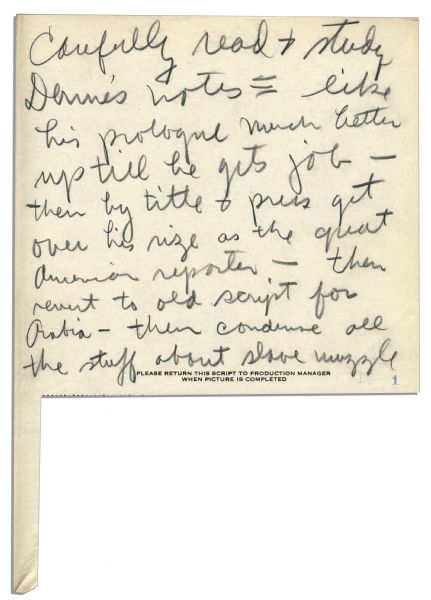 Carefully read + study
Denne's notes = like
his prologue much better
up till he gets job —
then by title + press get
over his rize as the great
American reporter — then
revert to old script for
Arabia — then condense all
the stuff about slave muzzle
PLEASE RETURN THIS SCRIPT TO PRODUCTION MANAGER
WHEN PICTURE IS COMPLETED
1